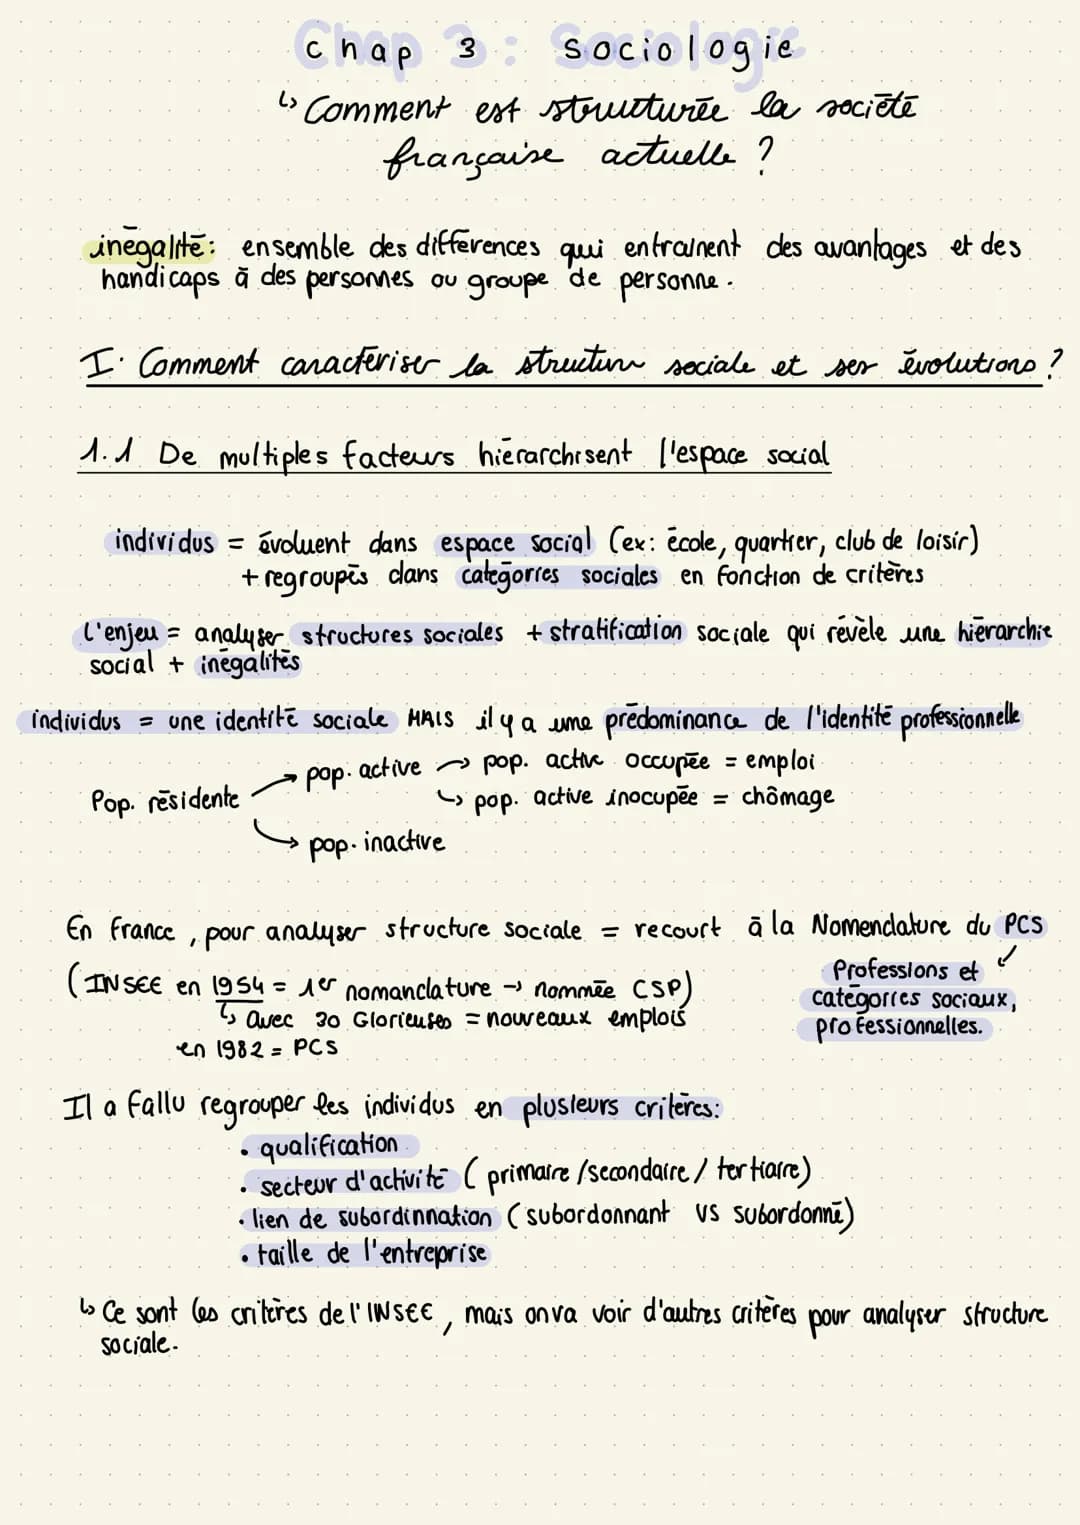 Chap 3 : Sociologie
↳ Comment est structurée la société
française actuelle ?
inégalité : ensemble des différences qui entrainent des avantages et des
handicaps à des personnes ou groupe de personne.
I. Comment caractériser la structure sociale et ses évolutions ?
1.1 De multiples facteurs hiérarchisent l'espace social
individus = évoluent dans espace social (ex: école, quartier, club de loisir)
+ regroupés dans catégories sociales en fonction de critères
L'enjeu = analyser structures sociales + stratification sociale qui révèle une hiérarchie
social + inégalités
individus = une identité sociale MAIS il y a une prédominance de l'identité professionnelle
pop. active → pop. active occupée = emploi
Pop. résidente ↳ pop. active inocupée = chômage
pop. inactive
En france, pour analyser structure sociale = recourt à la Nomenclature du PCS
(INSEE en 1954 = 1er nomanclature → nommée CSP)
↳ avec 30 Glorieuses = nouveaux emplois
en 1982 = PCS
Professions et
catégories sociaux,
professionnelles.
Il a fallu regrouper les individus en plusieurs critères:
• qualification
• secteur d'activité (primaire/secondaire/tertiaire)
• lien de subordinnation (subordonnant VS subordonné)
• taille de l'entreprise
↳ Ce sont les critères de l'INSEE, mais on va voir d'autres critères pour analyser structure
sociale.